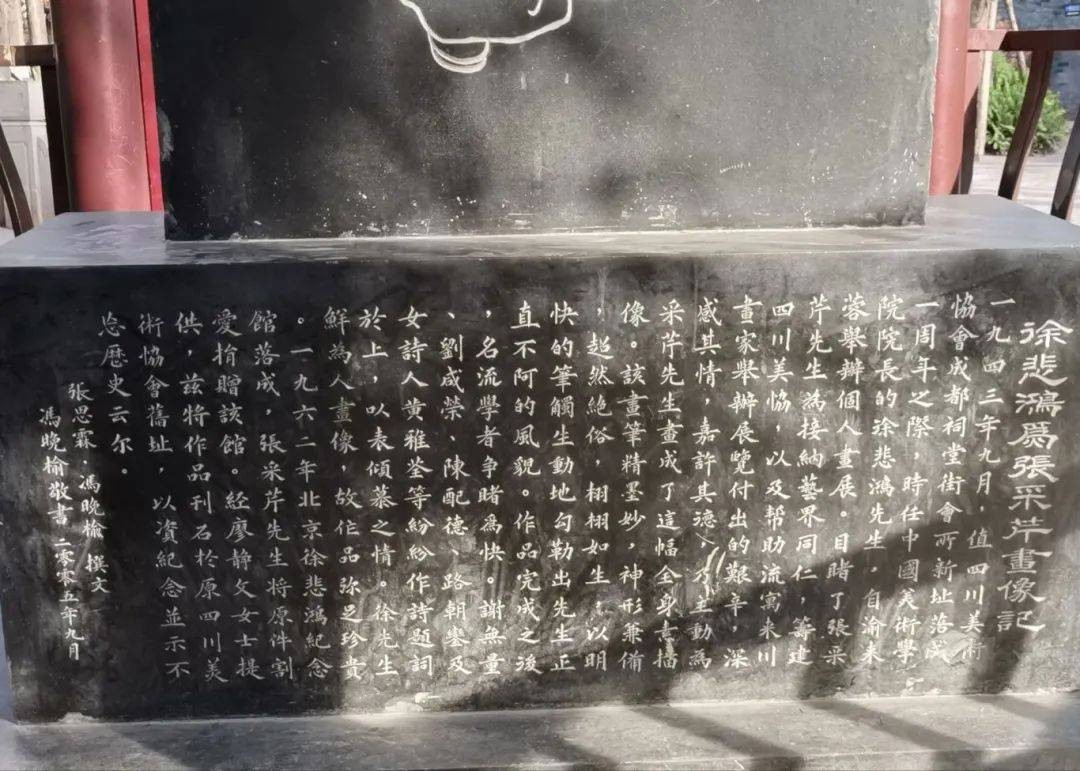 徐悲鴻爲張采芹畫像記
一九四三年九月，值四川美術
協會成都祠堂街會所新址落成
一周年之際，時任中國美術學
院院長的徐悲鴻先生，自渝来
蓉舉辦個人畫展。目睹了張采
芹先生為接納藝界同仁，籌建
四川美協，以及帮助流寓来川
畫家舉辦展覽付出的艱辛，深
感其情，嘉許其德，才主動爲
采芹先生畫成了這幅全身素描
像。該畫筆精墨妙，神形兼備
，超然絶俗，栩栩如生；以明
快的筆觸生動地勾勒出先生正
直不阿的風貌。作品完成之後
，名流學者争睹爲快。謝無量
、劉咸榮、陳配德、路朝鑾及
女詩人黄稚荃等紛紛作詩題詞
於上，以表傾慕之情。徐先生
鮮為人畫像，故作品弥足珍貴
。一九六二年北京徐悲鴻紀念
館落成，張采芹先生將原件割
愛捐贈該館。經廖静文女士提
供，兹將作品刊石於原四川美
術協會舊址，以資紀念並示不
忘歷史云尔。
張思霖·馮晚榆 撰文
馮晚榆敬書 二零零五年九月